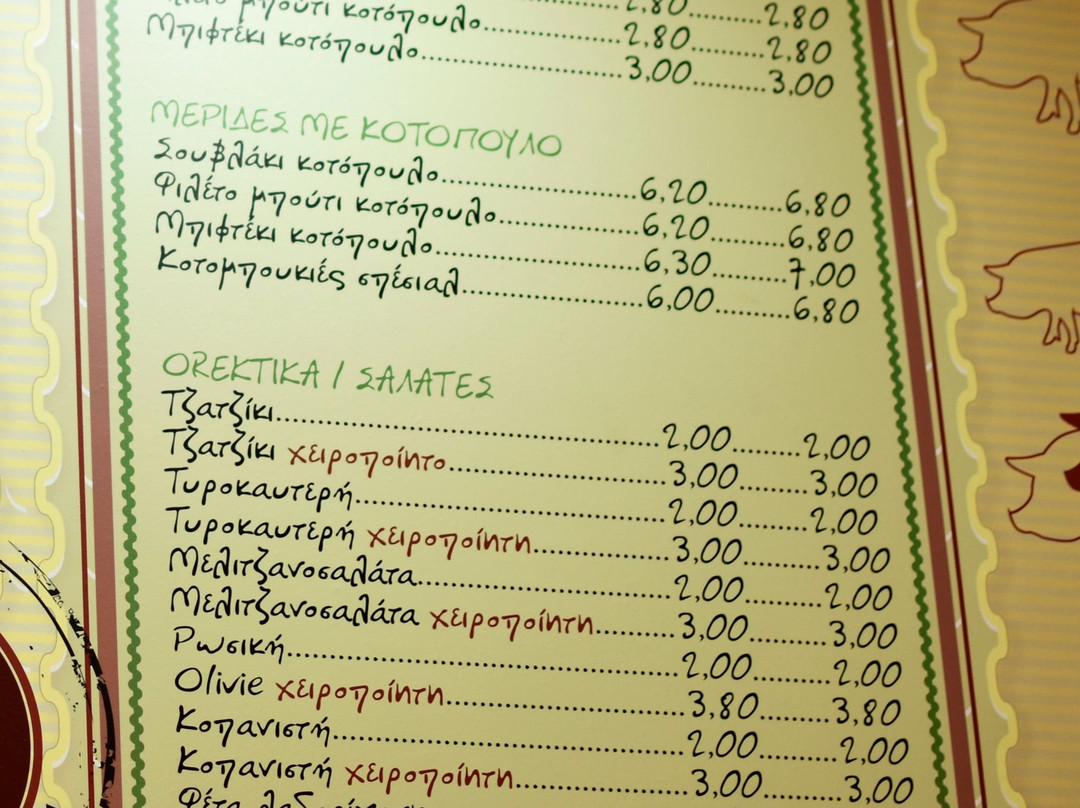 μπούτι κοτόπουλο..........2,80..........2,80
Μπιφτέκι κοτόπουλο..........3,00..........3,00
ΜΕΡΙΔΕΣ ΜΕ ΚΟΤΟΠΟΥΛΟ
Σουβλάκι κοτόπουλο..........6,20..........6,80
Φιλέτο μπούτι κοτόπουλο..........6,20..........6,80
Μπιφτέκι κοτόπουλο..........6,30..........7,00
Κοτομπουκιές σπέσιαλ..........6,00..........6,80
ΟRΕΚΤΙΚΑ / ΣΑΛΑΤΕΣ
Τζατζίκι..........2,00..........2,00
Τζατζίκι χειροποίητο..........3,00..........3,00
Τυροκαυτερή..........2,00..........2,00
Τυροκαυτερή χειροποίητη..........3,00..........3,00
Μελιτζανοσαλάτα..........2,00..........2,00
Μελιτζανοσαλάτα χειροποίητη..........3,00..........3,00
Ρωσική..........2,00..........2,00
Olivie χειροποίητη..........3,80..........3,80
Κοπανιστή..........2,00..........2,00
Κοπανιστή χειροποίητη..........3,00..........3,00
Φέτα